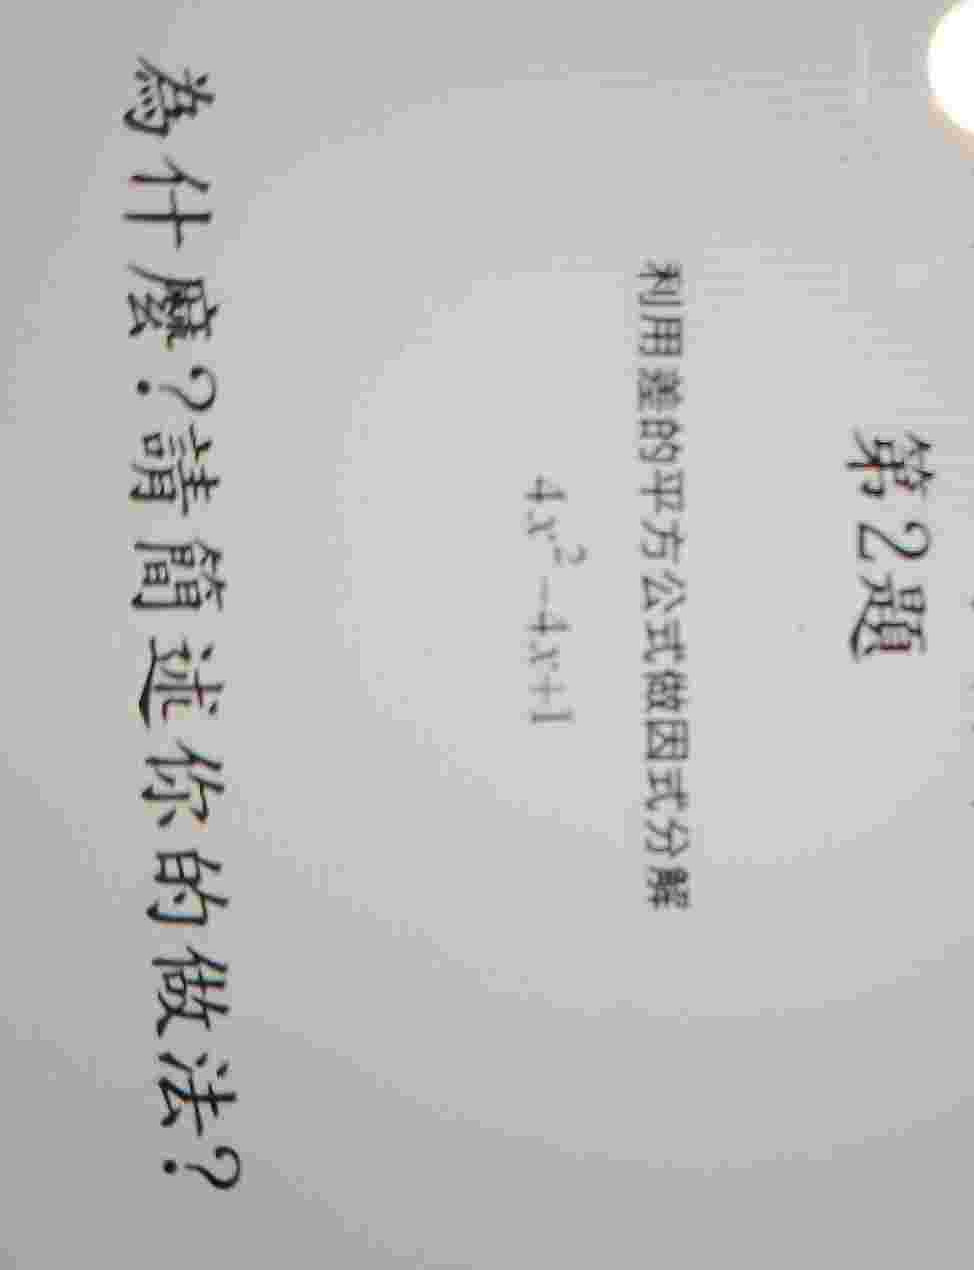 第2題
利用差的平方公式做因式分解
4x²-4x+1
為什麼?請簡述你的做法?